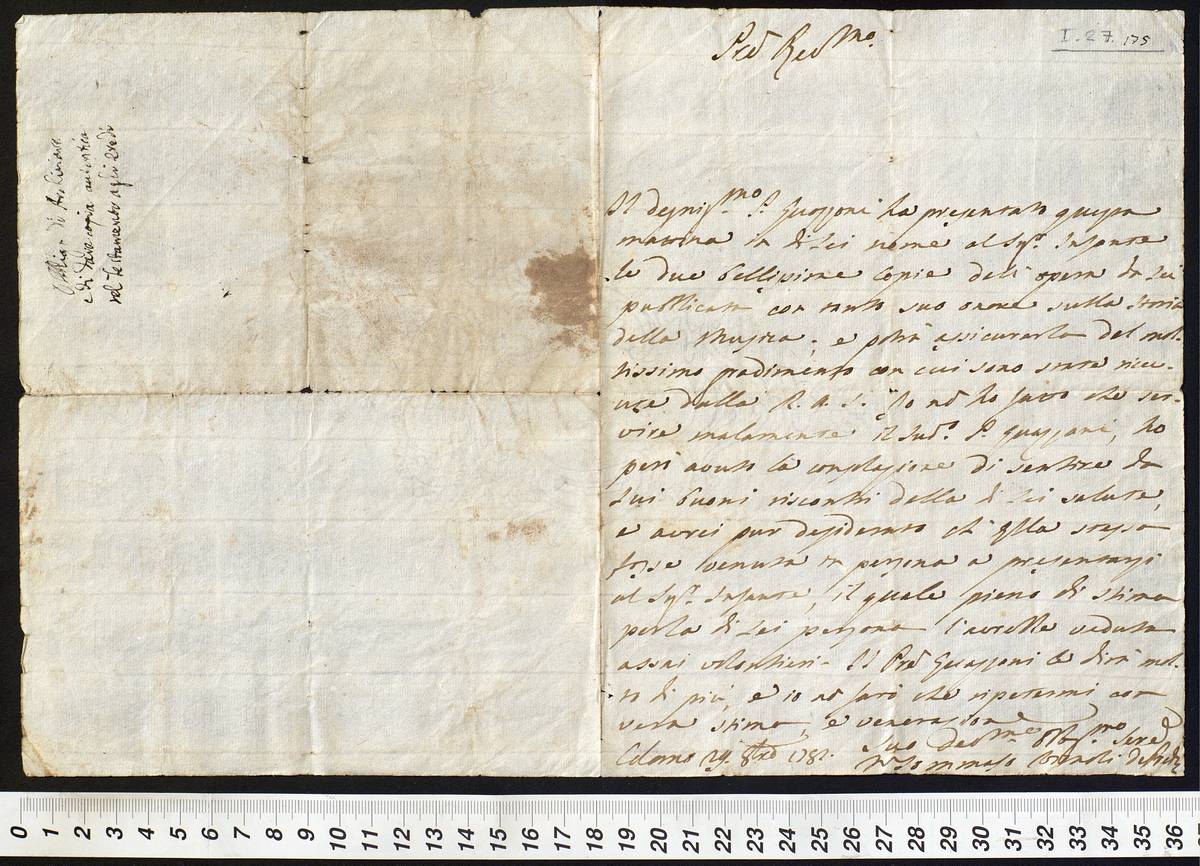 Obligo di Archiviare
e di dare copia autentica
del testamento agli eredi
I. 27. 175
Pre Rev.mo
Il degnis.mo P. Guazzoni ha presentato questa
mattina in di Lei nome al Sig.r Infante
le due bellissime copie dell'opera da Lei
pubblicata con tanto suo onore sulla storia
della Musica; e potrà assicurarla del mol-
tissimo gradimento con cui sono state rice-
vute dalla R. A. S. Io nō ho fatto che ser-
vire malamente il sud.o P. Guazzoni, ho
però avuto la consolazione di sentire da
lui buoni riscontri della di Lei salute,
e avrei pur desiderato ch'Ella stessa
fosse venuta in persona a presentarsi
al Sig.r Infante, il quale pieno di stima
per la di Lei persona l'avrebbe veduta
assai volontieri. Il Pre Guazzoni le dirà mol-
to di più, e io nō farò che ripetermi con
vera stima, e venerazione
Colorno 29. 8bre 1781.
Suo Dev.mo Obb.mo Serve
Tommaso
0 1 2 3 4 5 6 7 8 9 10 11 12 13 14 15 16 17 18 19 20 21 22 23 24 25 26 27 28 29 30 31 32 33 34 35 36